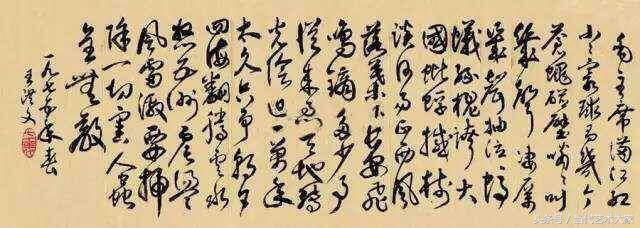 毛主席满江红
小小寰球有几个
苍蝇碰壁嗡嗡叫
几声凄厉
几声抽泣蚂
蚁缘槐夸大
国蚍蜉撼树
谈何易正西风
落叶下长安飞
鸣镝多少事
从来急天地转
光阴迫一万年
太久只争朝夕
四海翻腾云水
怒五洲震荡
风雷激要扫
除一切害人虫
全无敌
一九七五年春
王洪文
头条号 / 当代艺术大家